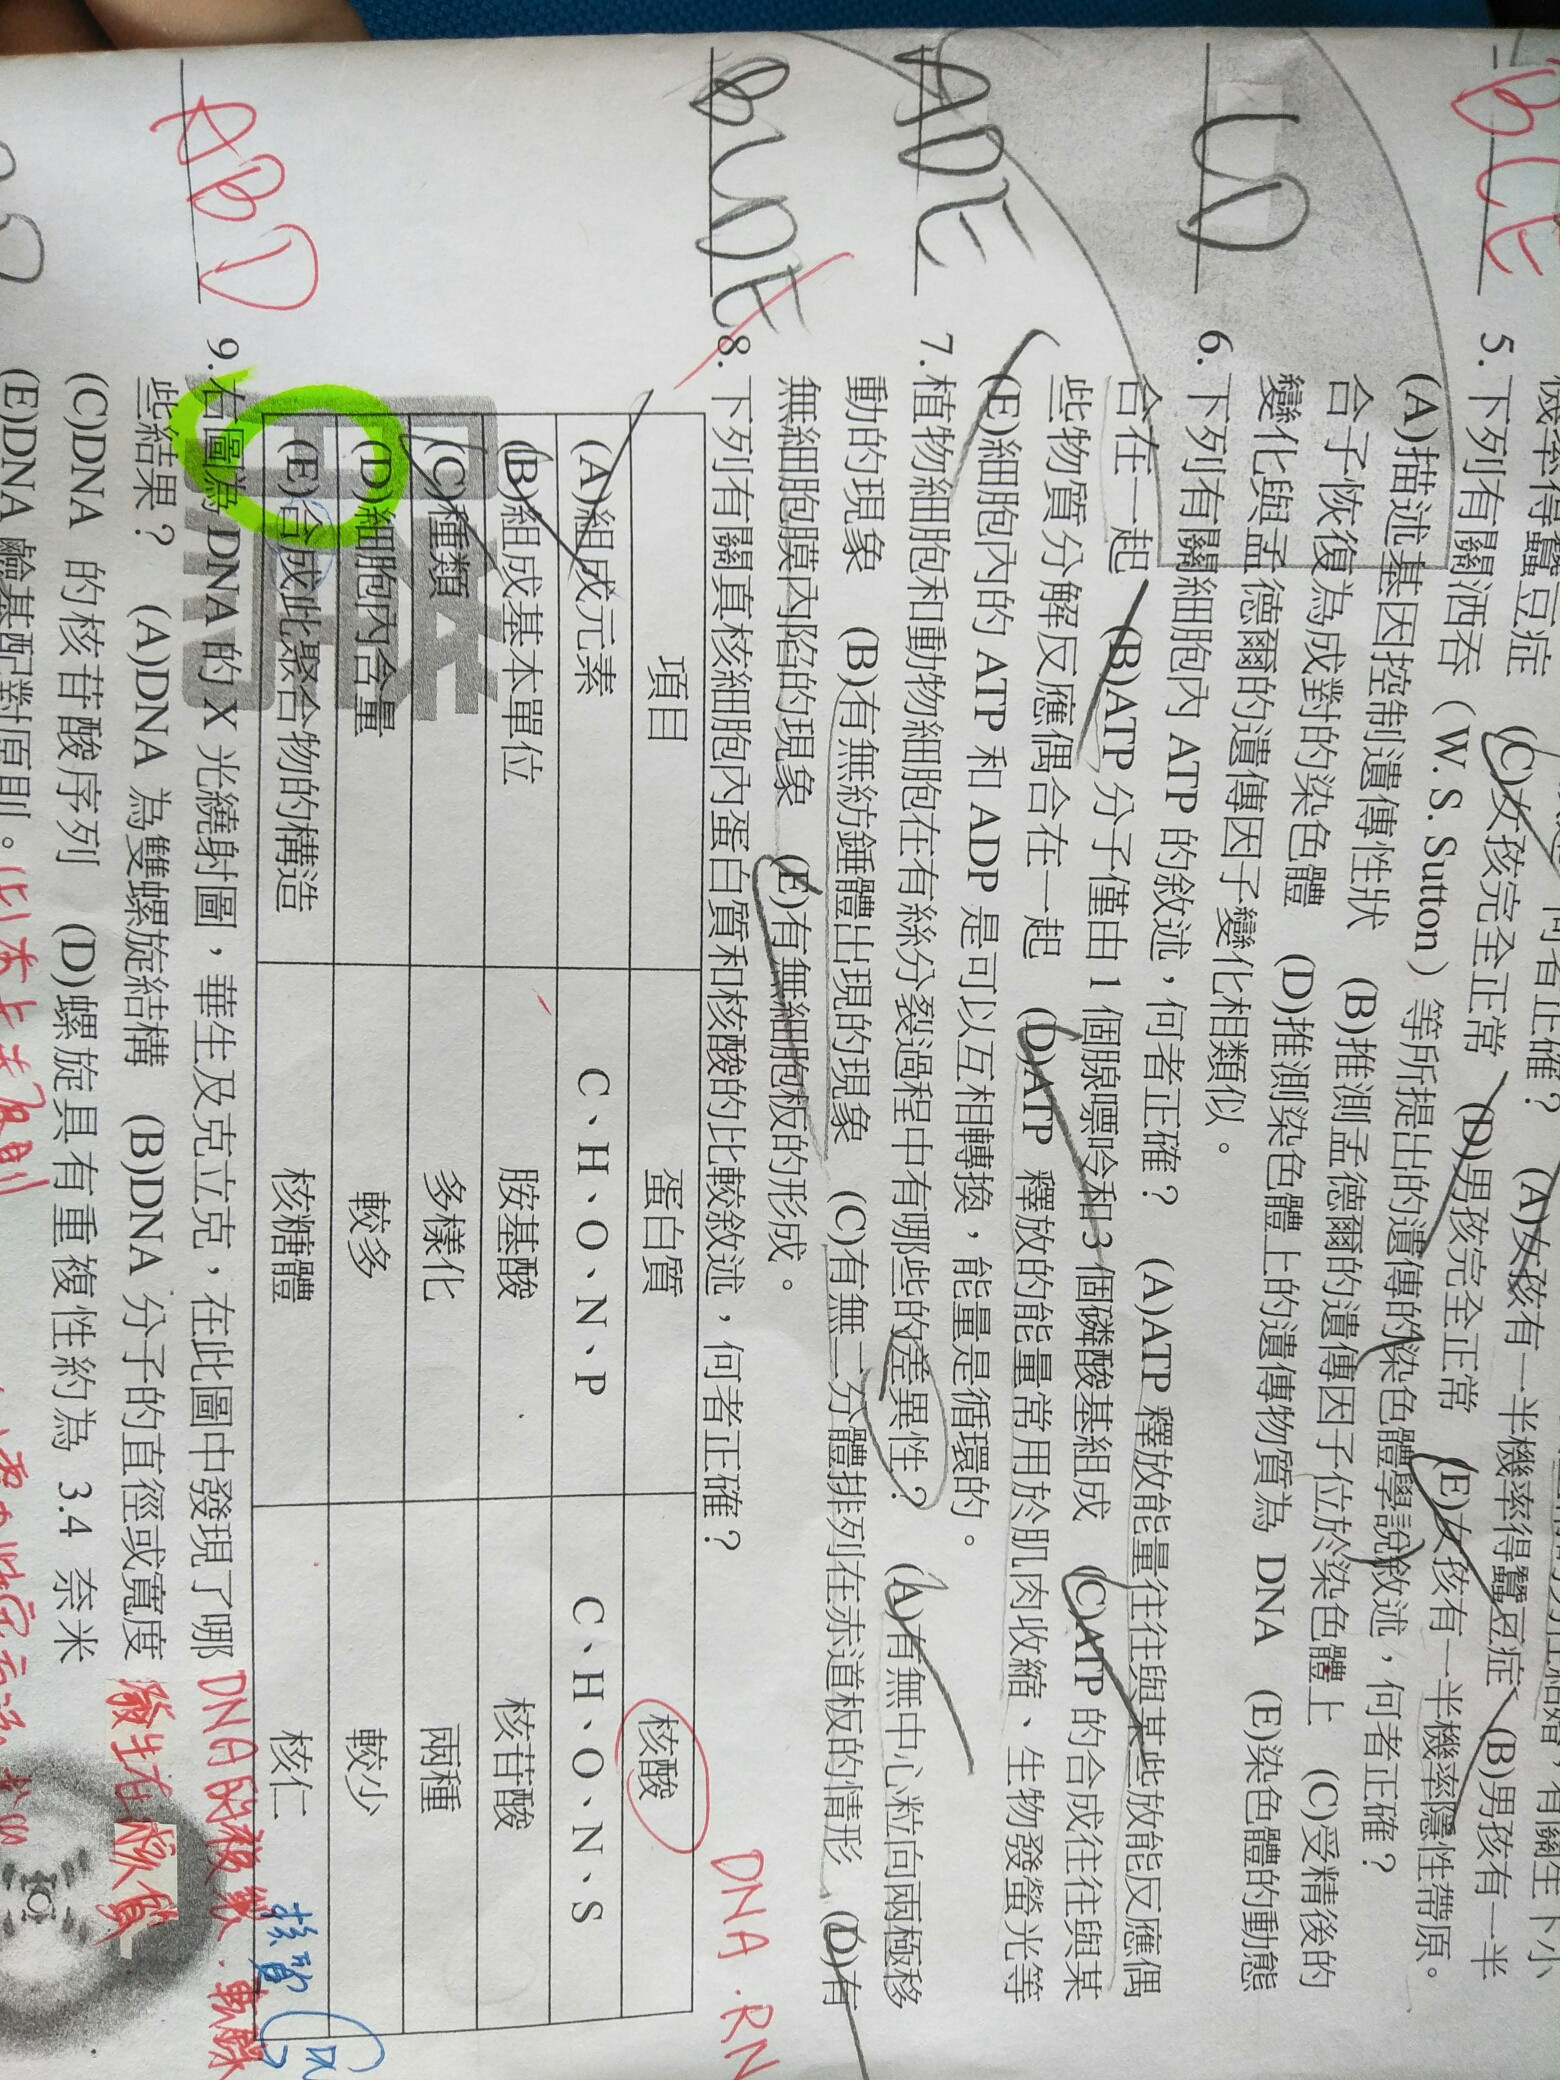 機率得蠶豆症 (C)女孩完全正常 (D)男孩完全正常 (E)女孩有一半機率隱性帶原。
BCE 5.下列有關洒吞（W. S. Sutton）等所提出的遺傳的染色體學說敘述，何者正確？
(A)描述基因控制遺傳性狀 (B)推測孟德爾的遺傳因子位於染色體上 (C)受精後的
合子恢復為成對的染色體 (D)推測染色體上的遺傳物質為 DNA (E)染色體的動態
變化與孟德爾的遺傳因子變化相類似。
6.下列有關細胞內 ATP 的敘述，何者正確？ (A)ATP 釋放能量往往與某些放能反應偶
合在一起 (B)ATP 分子僅由 1 個腺嘌呤和 3 個磷酸基組成 (C)ATP 的合成往往與某
些物質分解反應偶合在一起 (D)ATP 釋放的能量常用於肌肉收縮、生物發螢光等
(E)細胞內的 ATP 和 ADP 是可以互相轉換，能量是循環的。
ADE 7.植物細胞和動物細胞在有絲分裂過程中有哪些的差異性？ (A)有無中心粒向兩極移
動的現象 (B)有無紡錘體出現的現象 (C)有無二分體排列在赤道板的情形 (D)有
無細胞膜內陷的現象 (E)有無細胞板的形成。
8.下列有關真核細胞內蛋白質和核酸的比較敘述，何者正確？
DNA.RN
項目 蛋白質 核酸
(A)組成元素 C、H、O、N、P C、H、O、N、S
(B)組成基本單位 胺基酸 核苷酸
(C)種類 多樣化 兩種
(D)細胞內含量 較多 較少
(E)合成此聚合物的構造 核糖體 核仁
核質
ABD 9.右圖為 DNA 的 X 光繞射圖，華生及克立克，在此圖中發現了哪
些結果？ (A)DNA 為雙螺旋結構 (B)DNA 分子的直徑或寬度
(C)DNA 的核苷酸序列 (D)螺旋具有重複性約為 3.4 奈米
(E)DNA 鹼基配對原則。
DNA的複製.轉錄
發生在核質